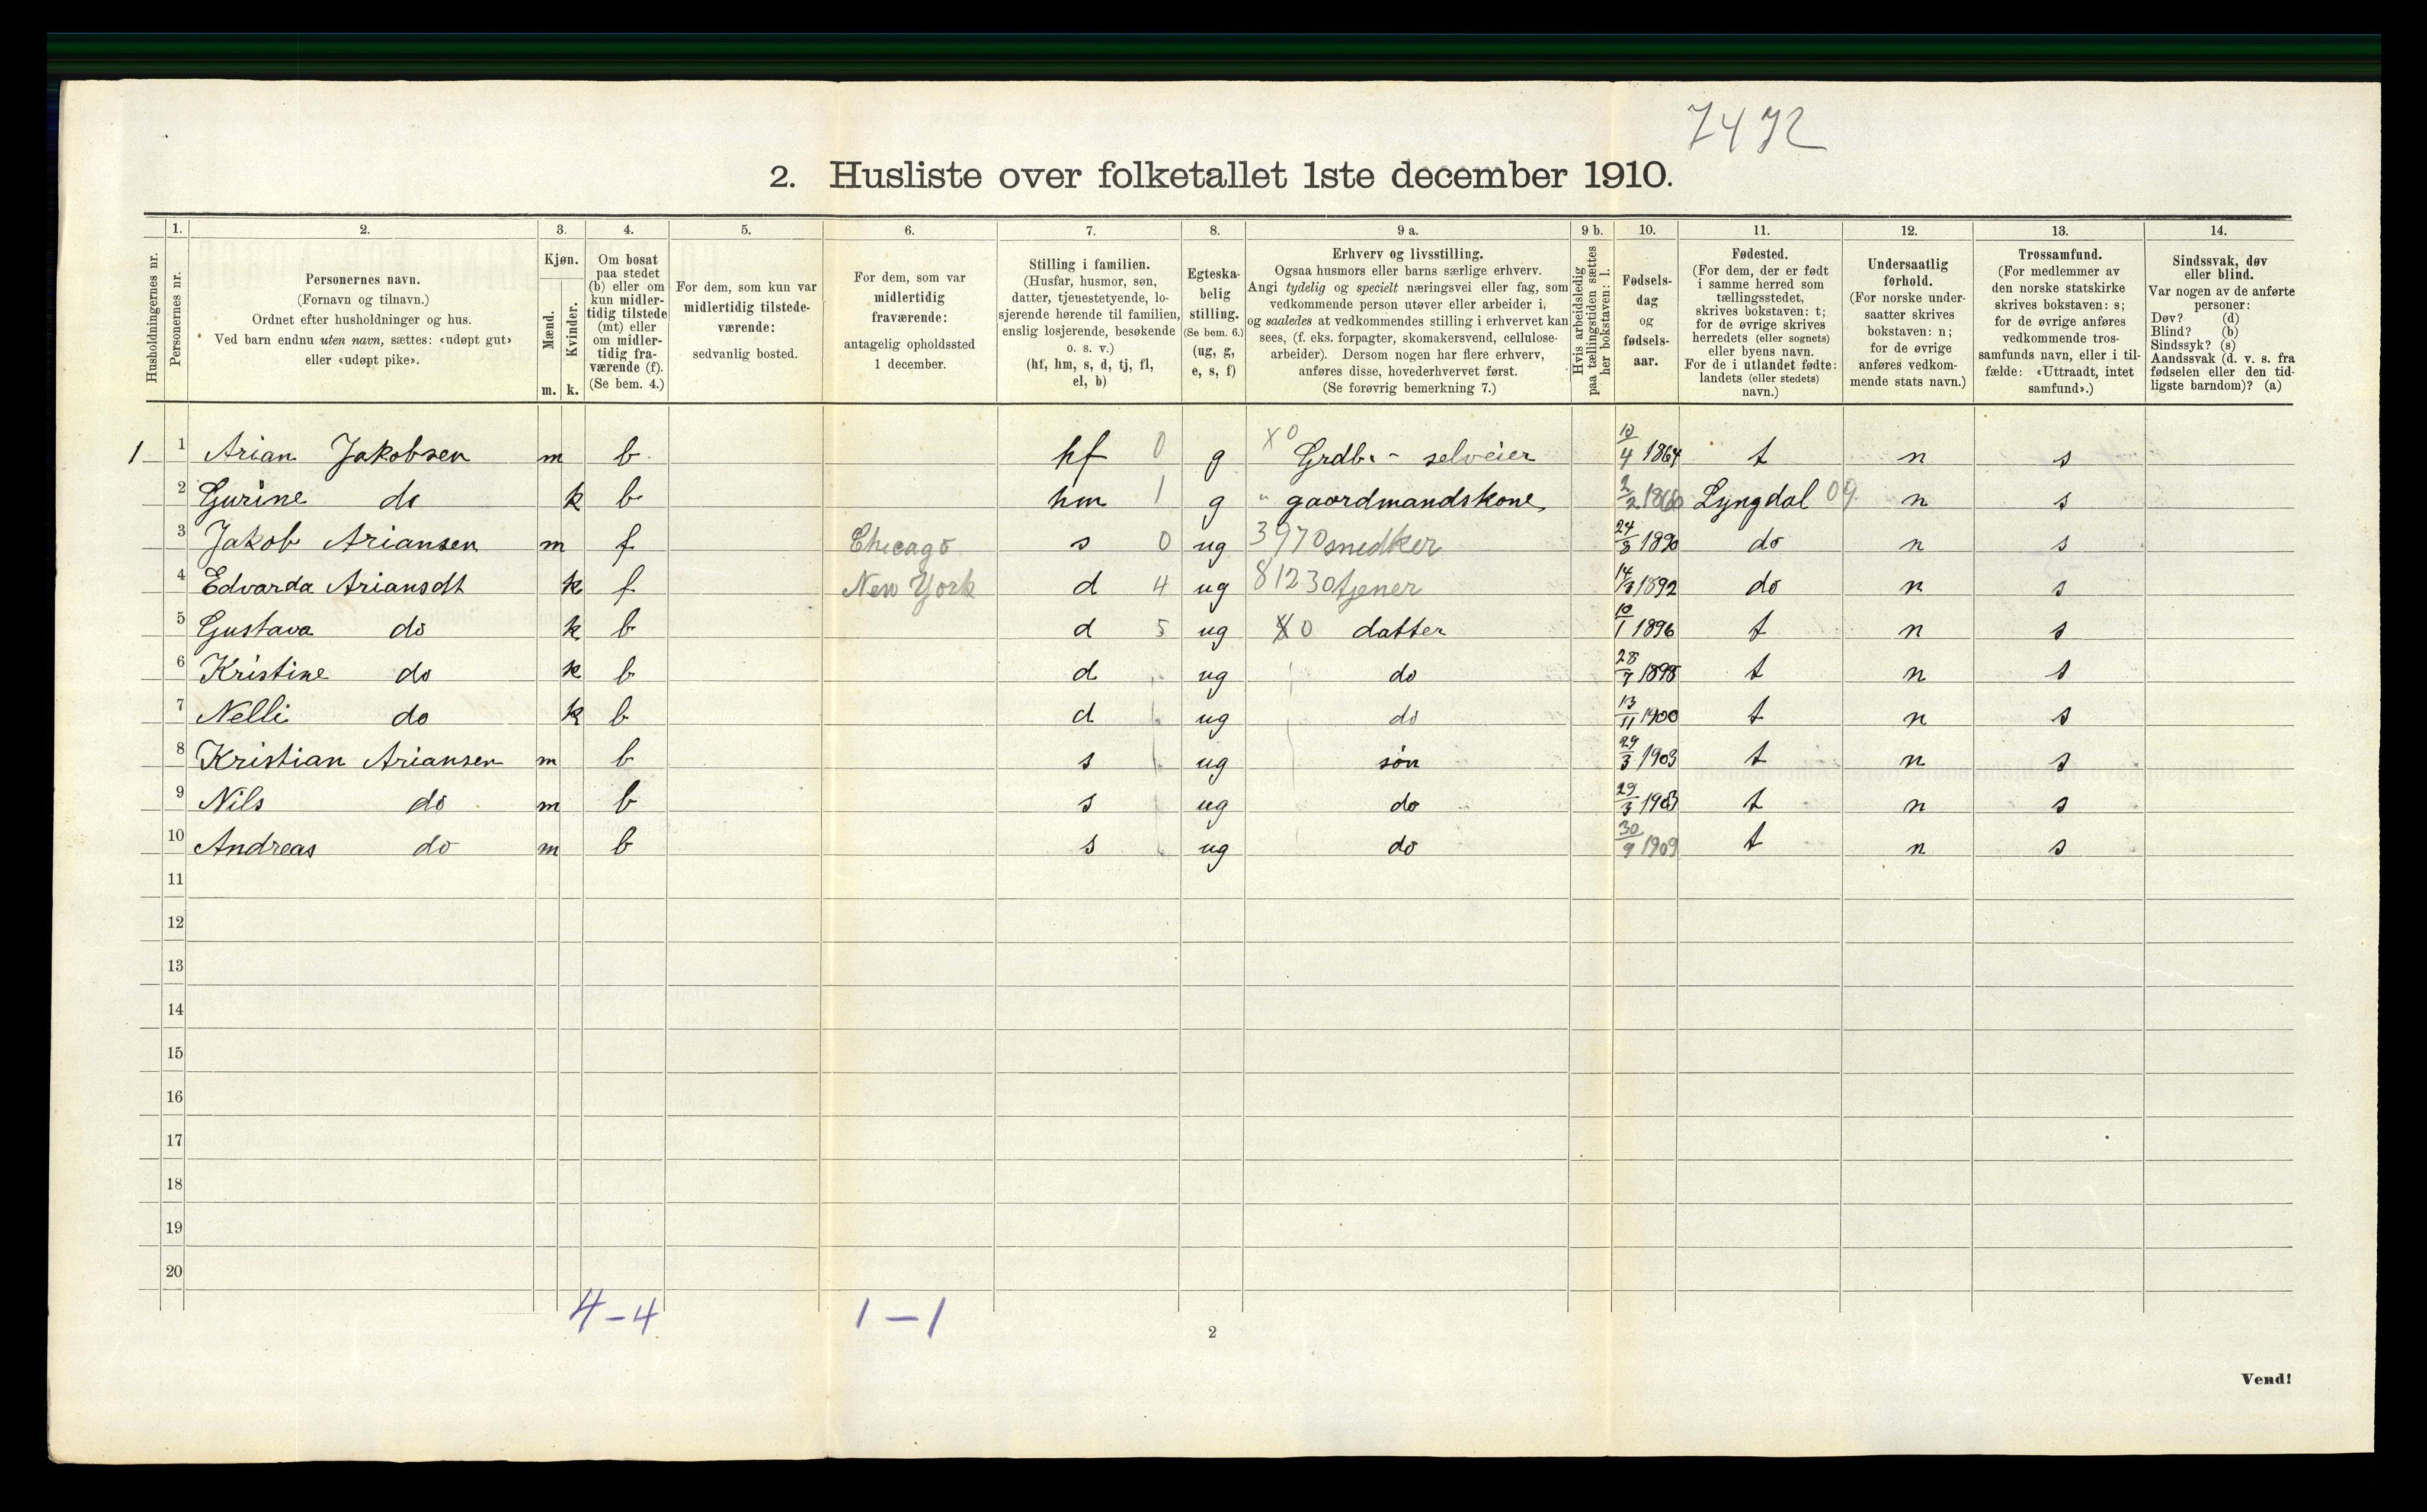 7472
2. Husliste over folketallet 1ste december 1910.
Husholdningernes nr.
1.
Personernes nr.
2.
Personernes navn.
(Fornavn og tilnavn.)
Ordnet efter husholdninger og hus.
Ved barn endnu uten navn, sættes: «udøpt gut»
eller «udøpt pike».
3.
Kjøn.
Mænd.
Kvinder.
m. k.
4.
Om bosat
paa stedet
(b) eller om
kun midler-
tidig tilstede
(mt) eller
om midler-
tidig fra-
værende (f).
(Se bem. 4.)
5.
For dem, som kun var
midlertidig tilstede-
værende:
sedvanlig bosted.
6.
For dem, som var
midlertidig
fraværende:
antagelig opholdssted
1 december.
7.
Stilling i familien.
(Husfar, husmor, søn,
datter, tjenestetyende, lo-
sjerende hørende til familien,
enslig losjerende, besøkende
o. s. v.)
(hf, hm, s, d, tj, fl,
el, b)
8.
Egteska-
belig
stilling.
(Se bem. 6.)
(ug, g,
e, s, f)
9 a.
Erhverv og livsstilling.
Ogsaa husmors eller barns særlige erhverv.
Angi tydelig og specielt næringsvei eller fag, som
vedkommende person utøver eller arbeider i,
og saaledes at vedkommendes stilling i erhvervet kan
sees, (f. eks. forpagter, skomakersvend, cellulose-
arbeider). Dersom nogen har flere erhverv,
anføres disse, hovederhvervet først.
(Se forøvrig bemerkning 7.)
9 b.
Hvis arbeidsledig
paa tællingstiden sættes
her bokstaven: l.
10.
Fødsels-
dag
og
fødsels-
aar.
11.
Fødested.
(For dem, der er født
i samme herred som
tællingsstedet,
skrives bokstaven: t;
for de øvrige skrives
herredets (eller sognets)
eller byens navn.
For de i utlandet fødte:
landets (eller stedets)
navn.)
12.
Undersaatlig
forhold.
(For norske under-
saatter skrives
bokstaven: n;
for de øvrige
anføres vedkom-
mende stats navn.)
13.
Trossamfund.
(For medlemmer av
den norske statskirke
skrives bokstaven: s;
for de øvrige anføres
vedkommende tros-
samfunds navn, eller i til-
fælde: «Uttraadt, intet
samfund».)
14.
Sindssvak, døv
eller blind.
Var nogen av de anførte
personer:
Døv? (d)
Blind? (b)
Sindssyk? (s)
Aandssvak (d. v. s. fra
fødselen eller den tid-
ligste barndom)? (a)
1 1 Arian Jakobsen m b hf 0 g X0 Grdbr - selveier 10/4 1864 t n s
2 Gurine do k b hm 1 g " gaardmandskone 2/2 1860 Lyngdal 09 n s
3 Jakob Ariansen m f Chicago s 0 ug 3970 snedker 24/8 1890 do n s
4 Edvarda Ariansdt k f New York d 4 ug 81230 tjener 14/3 1892 do n s
5 Gustava do k b d 5 ug X0 datter 10/1 1896 t n s
6 Kristine do k b d ug do 28/7 1898 t n s
7 Nelli do k b d ug do 13/11 1900 t n s
8 Kristian Ariansen m b s ug søn 29/3 1903 t n s
9 Nils do m b s ug do 29/3 1903 t n s
10 Andreas do m b s ug do 30/9 1909 t n s
11
12
13
14
15
16
17
18
19
20
4-4 1-1
2
Vend!